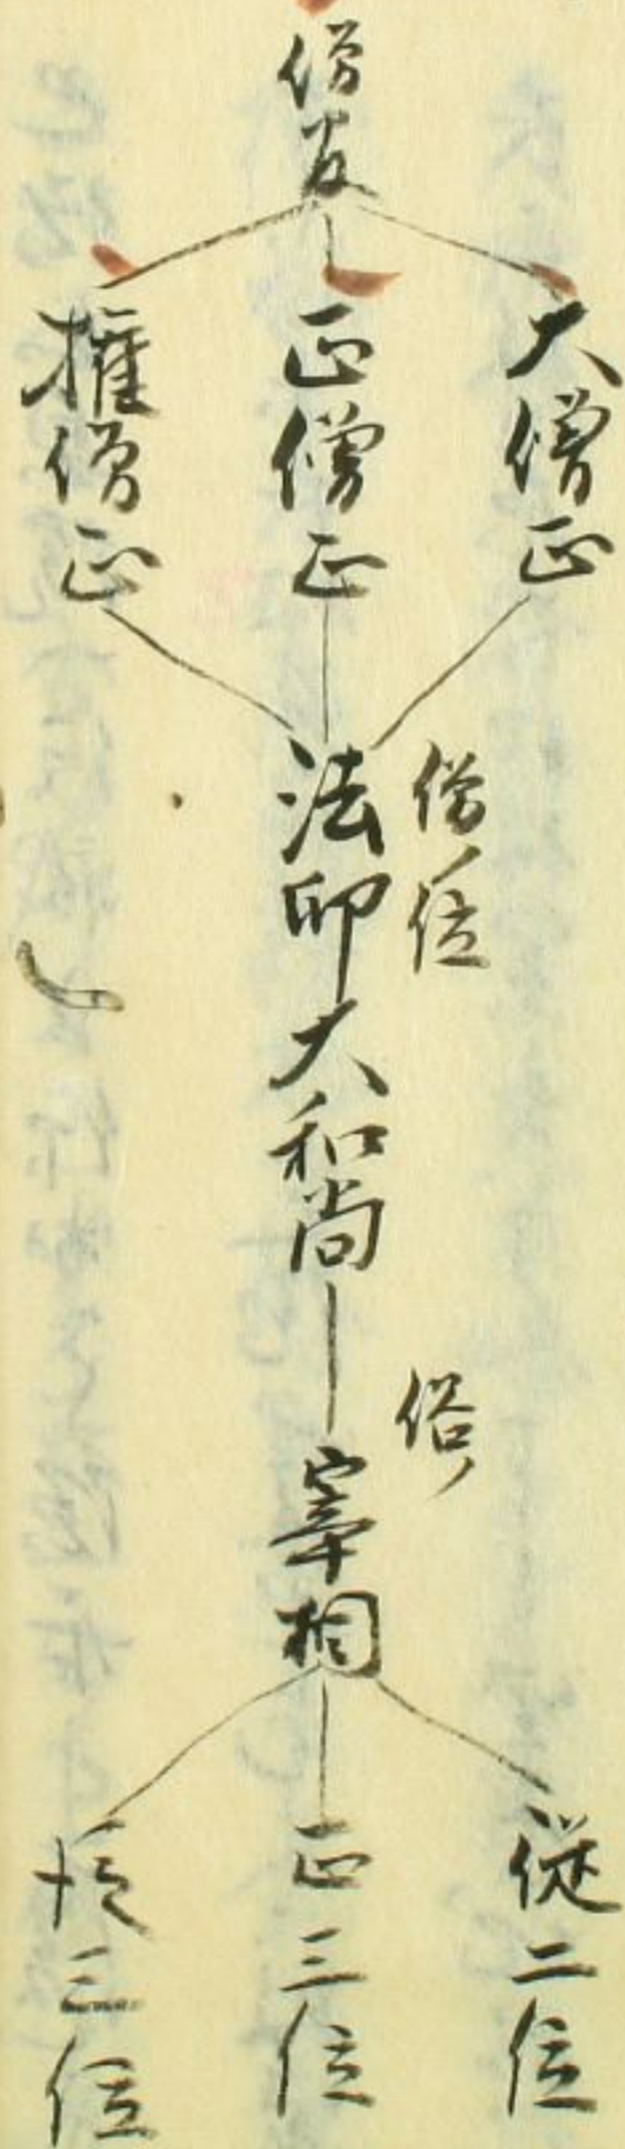 僧官
大僧正
正僧正
権僧正
僧位
法印大和尚
俗
宰相
従二位
正三位
従三位